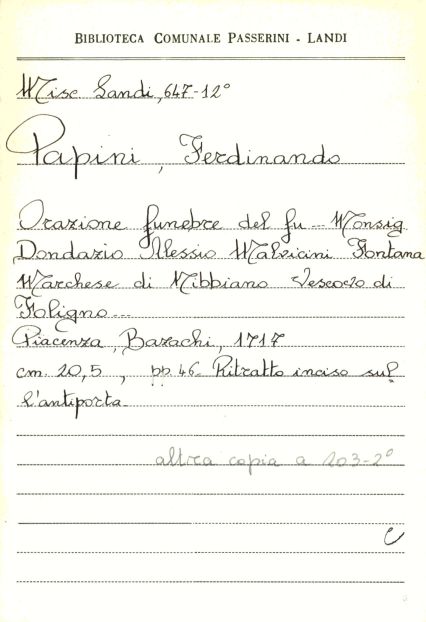 BIBLIOTECA COMUNALE PASSERINI - LANDI
Misc. Landi, 647-12°
Papini, Ferdinando
Orazione funebre del fu ... Monsig
Dondazio Alessio Malvicini Fontana
Marchese di Nibbiano Vescovo di
Foligno...
Piacenza, Bazachi, 1717
cm. 20,5, pp. 46. Ritratto inciso sul
l'antiporta
altra copia a 203-2°